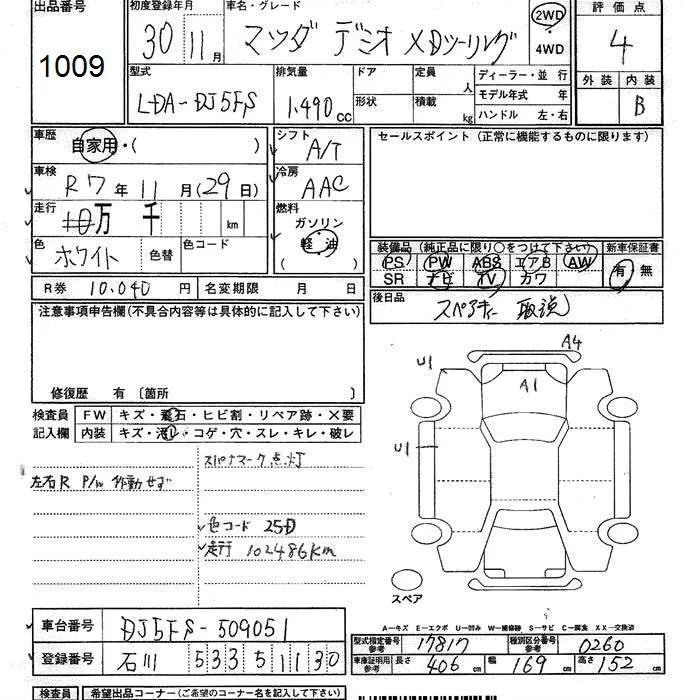 出品番号
1009
初度登録年月
30年11月
車名・グレード
マツダ デミオ XDツーリング
2WD
4WD
評価点
4
外装 内装
B
型式
LDA-DJ5FS
排気量
1.490cc
ドア
形状
定員
人
積載
kg
ディーラー・並行
モデル年式 年
ハンドル 左・右
車歴
自家用・( )
シフト
A/T
車検
R7年11月(29日)
冷房
AAC
走行
10万 千 km
燃料
ガソリン
軽油
( )
色
ホワイト
色替
色コード
R券 10.040円
名変期限 月 日
セールスポイント(正常に機能するものに限ります)
装備品(純正品に限り○をつけて下さい)
新車保証書
PS PW ABS エアB AW
SR ナビ TV カワ
有 無
後日品
スペアキー 取説
注意事項申告欄(不具合内容等は具体的に記入して下さい)
修復歴 有〔箇所 〕
検査員
記入欄
FW キズ・飛石・ヒビ割・リペア跡・×要
内装 キズ・汚レ・コゲ・穴・スレ・キレ・破レ
スパナマーク点灯
左右R P/W 作動せず
色コード 25D
走行 102486Km
U1
A4
A1
U1
スペア
A―キズ E―エクボ U―凹み W―補修跡 S―サビ C―腐食 XX―交換済
車台番号
DJ5FS-509051
登録番号
石川 533 5 1130
型式指定番号
参考
17817
種別区分番号
参考
0260
車庫証明用
参考
長さ 406cm 幅 169cm 高さ 152cm
検査員
希望出品コーナー(ご希望のコーナー名を記入して下さい)